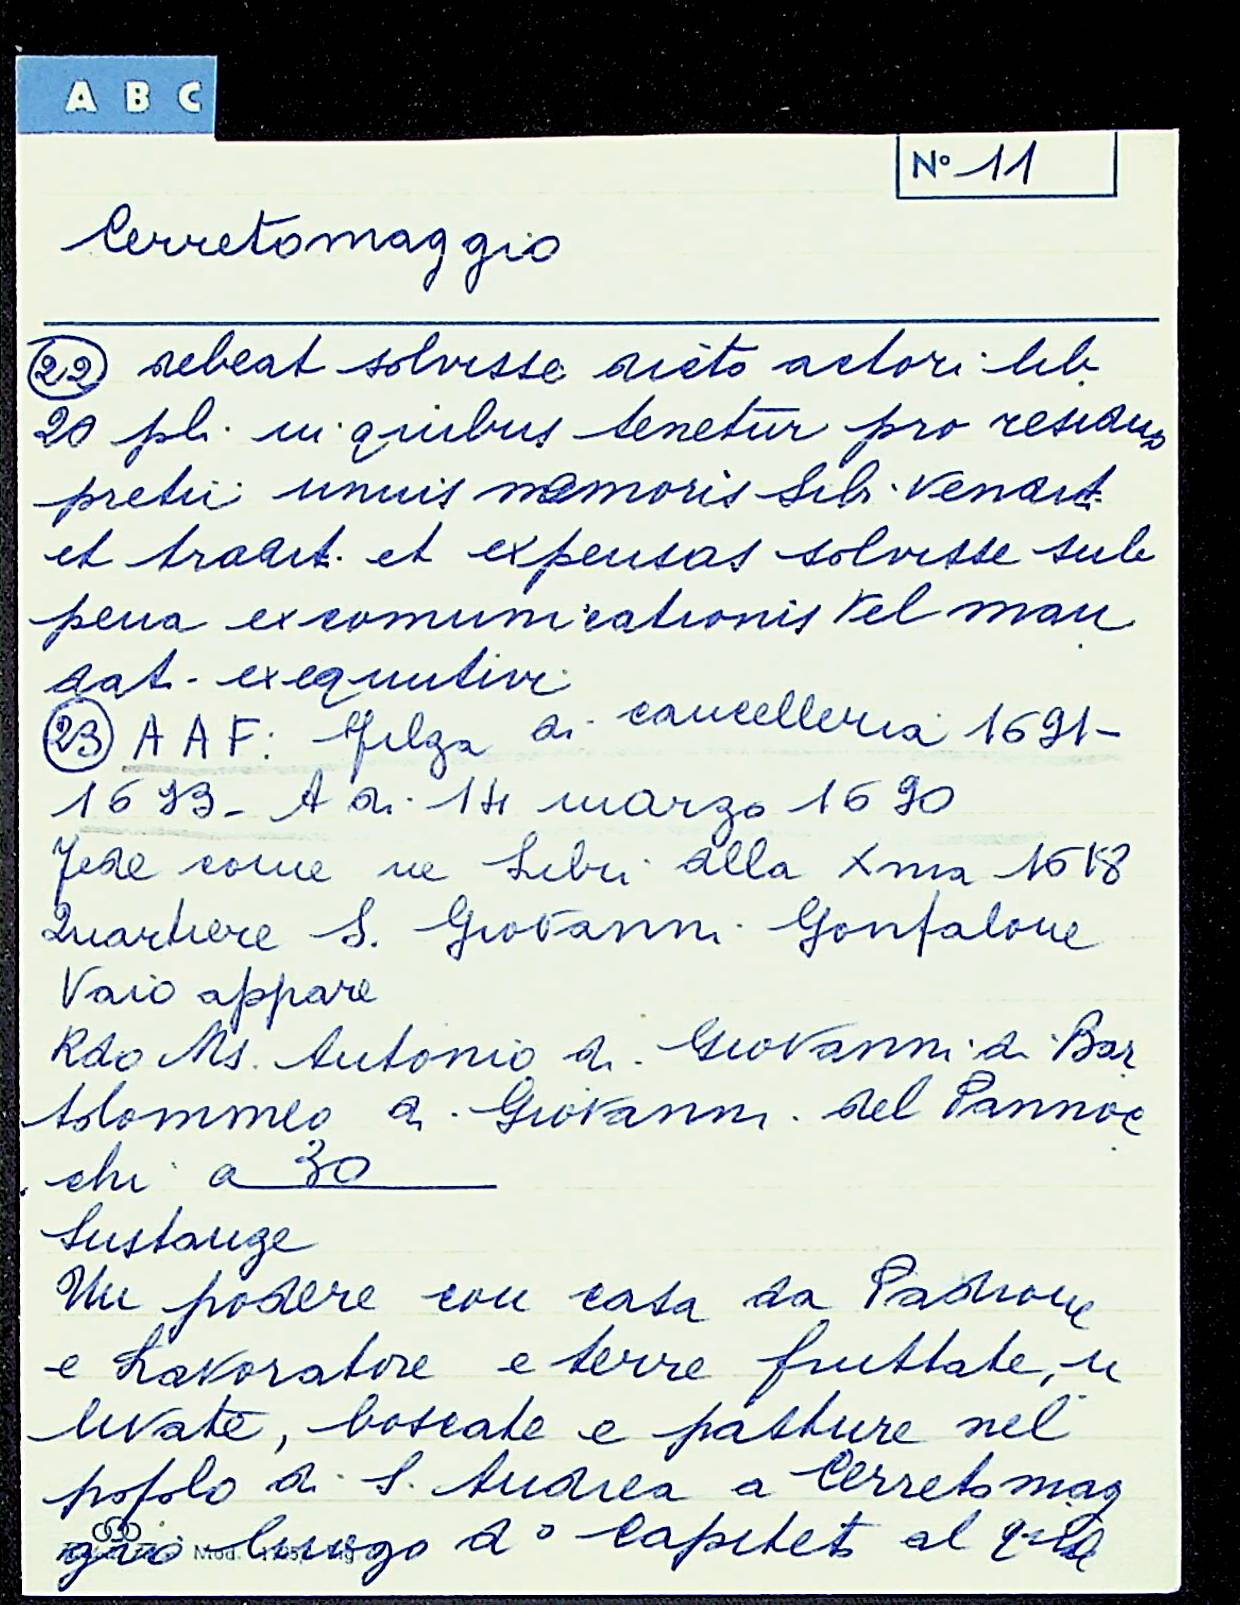 A B C
N° 11
Cerretomaggio
22 debeat solvisse dicto actori lib
20 pl. in quibus tenetur pro residuo
pretii unius nemoris Sibi vendit
et tradit. et expensas solvisse sub
pena excomunicationis vel man
dat. exequutivi
23 AAF: Filza di cancelleria 1691-
1693- A di 14 marzo 1690
Fede come ne Libri della Xma 1618
Quartiere S. Giovanni Gonfalone
Vaio appare
Rdo Ms. Antonio di Giovanni di Bar
tolommeo di Giovanni del Pannoc
chi a 30
Sustanze
Un podere con casa da Padrone
e Lavoratore e terre fruttate, u
livate, boscate e pasture nel
popolo di S. Andrea a Cerretomag
gio luogo d° Capiteto al
Mod.